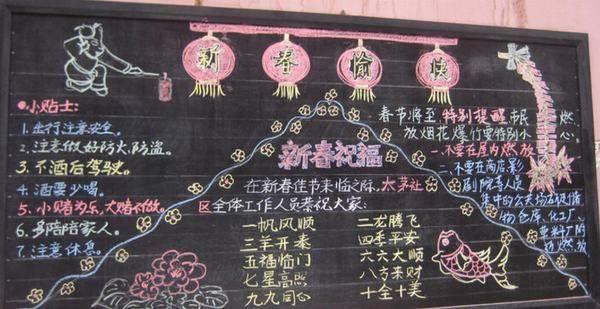 新春愉快
小贴士:
1.出行注意安全。
2.注意做好防火、防盗。
3.不酒后驾驶。
4.酒要少喝。
5.小赌为乐,大赌不做。
6.多陪陪家人。
7.注意休息。
新春祝福
在新春佳节来临之际,太茅社
区全体工作人员恭祝大家:
一帆风顺 二龙腾飞
三羊开泰 四季平安
五福临门 六六大顺
七星高照 八方来财
九九同心 十全十美
春节将至 特别提醒市民 燃
放烟花爆竹要特别小心。
一.不要在屋内燃放
二.不要在商店、影
剧院等人员
集中的公共场所
物仓库、化工厂、
燃放